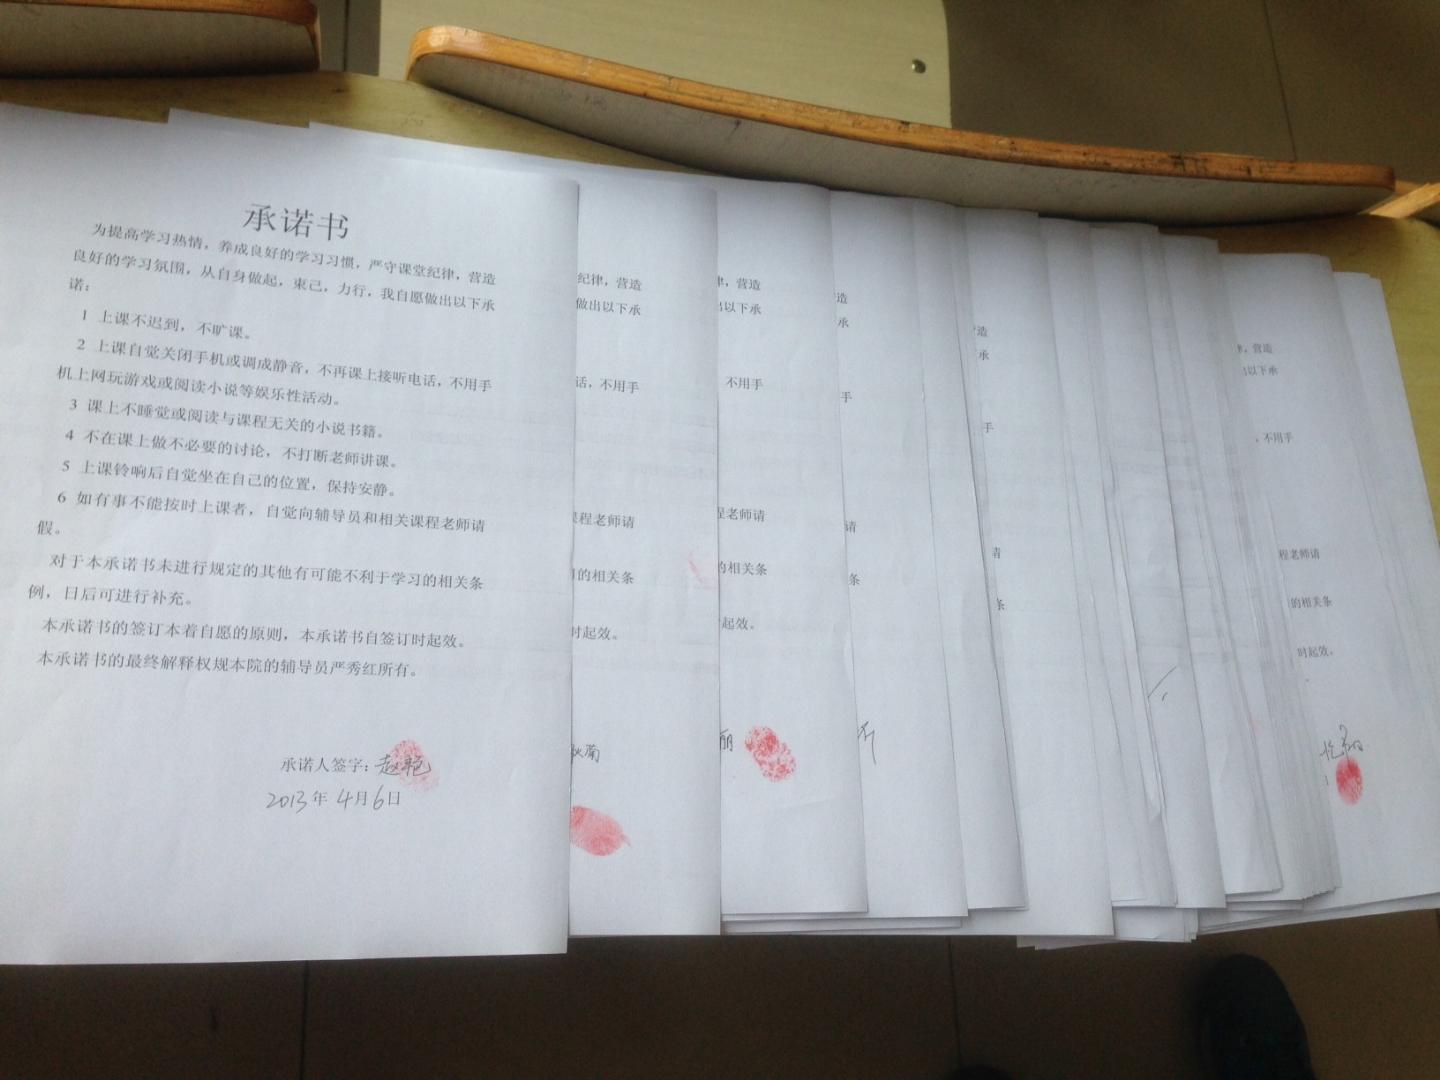 承诺书
为提高学习热情，养成良好的学习习惯，严守课堂纪律，营造
良好的学习氛围，从自身做起，束己，力行，我自愿做出以下承
诺：
1 上课不迟到，不旷课。
2 上课自觉关闭手机或调成静音，不再课上接听电话，不用手
机上网玩游戏或阅读小说等娱乐性活动。
3 课上不睡觉或阅读与课程无关的小说书籍。
4 不在课上做不必要的讨论，不打断老师讲课。
5 上课铃响后自觉坐在自己的位置，保持安静。
6 如有事不能按时上课者，自觉向辅导员和相关课程老师请
假。
对于本承诺书未进行规定的其他有可能不利于学习的相关条
例，日后可进行补充。
本承诺书的签订本着自愿的原则，本承诺书自签订时起效。
本承诺书的最终解释权规本院的辅导员严秀红所有。
承诺人签字：赵艳
2013年 4月6日
纪律，营造
做出以下承
话，不用手
课程老师请
的相关条
时起效。
秋菊
律，营造
出以下承
，不用手
程老师请
的相关条
起效。
丽
造
承
手
请
条
造
承
手
请
条
律，营造
以下承
，不用手
程老师请
的相关条
时起效。